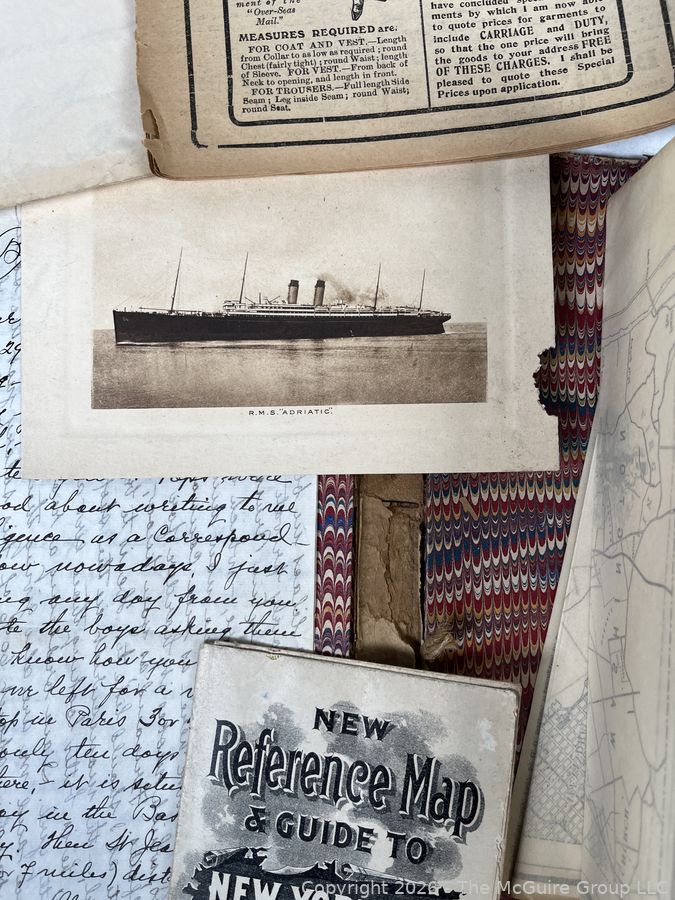 ment of the
"Over-Seas
Mail."
MEASURES REQUIRED are:
FOR COAT AND VEST.—Length
from Collar to as low as required; round
Chest (fairly tight); round Waist; length
of Sleeve. FOR VEST.—From back of
Neck to opening, and length in front.
FOR TROUSERS.—Full length Side
Seam; Leg inside Seam; round Waist;
round Seat.
have concluded
ments by which I am now able
to quote prices for garments to
include CARRIAGE and DUTY,
so that the one price will bring
the goods to your address FREE
OF THESE CHARGES. I shall be
pleased to quote these Special
Prices upon application.
R.M.S. "ADRIATIC".
were
od about writing to me
igence as a Correspond-
ow nowadays, I just
ng any day from you
te the boys asking them
know how you
we left for a
top in Paris for
only ten days
here, it is
ey in the Bas
y, then St Jea
r 7 miles) dist
NEW
Reference Map
& GUIDE TO
NEW YOR
Copyright 2026 The McGuire Group LLC